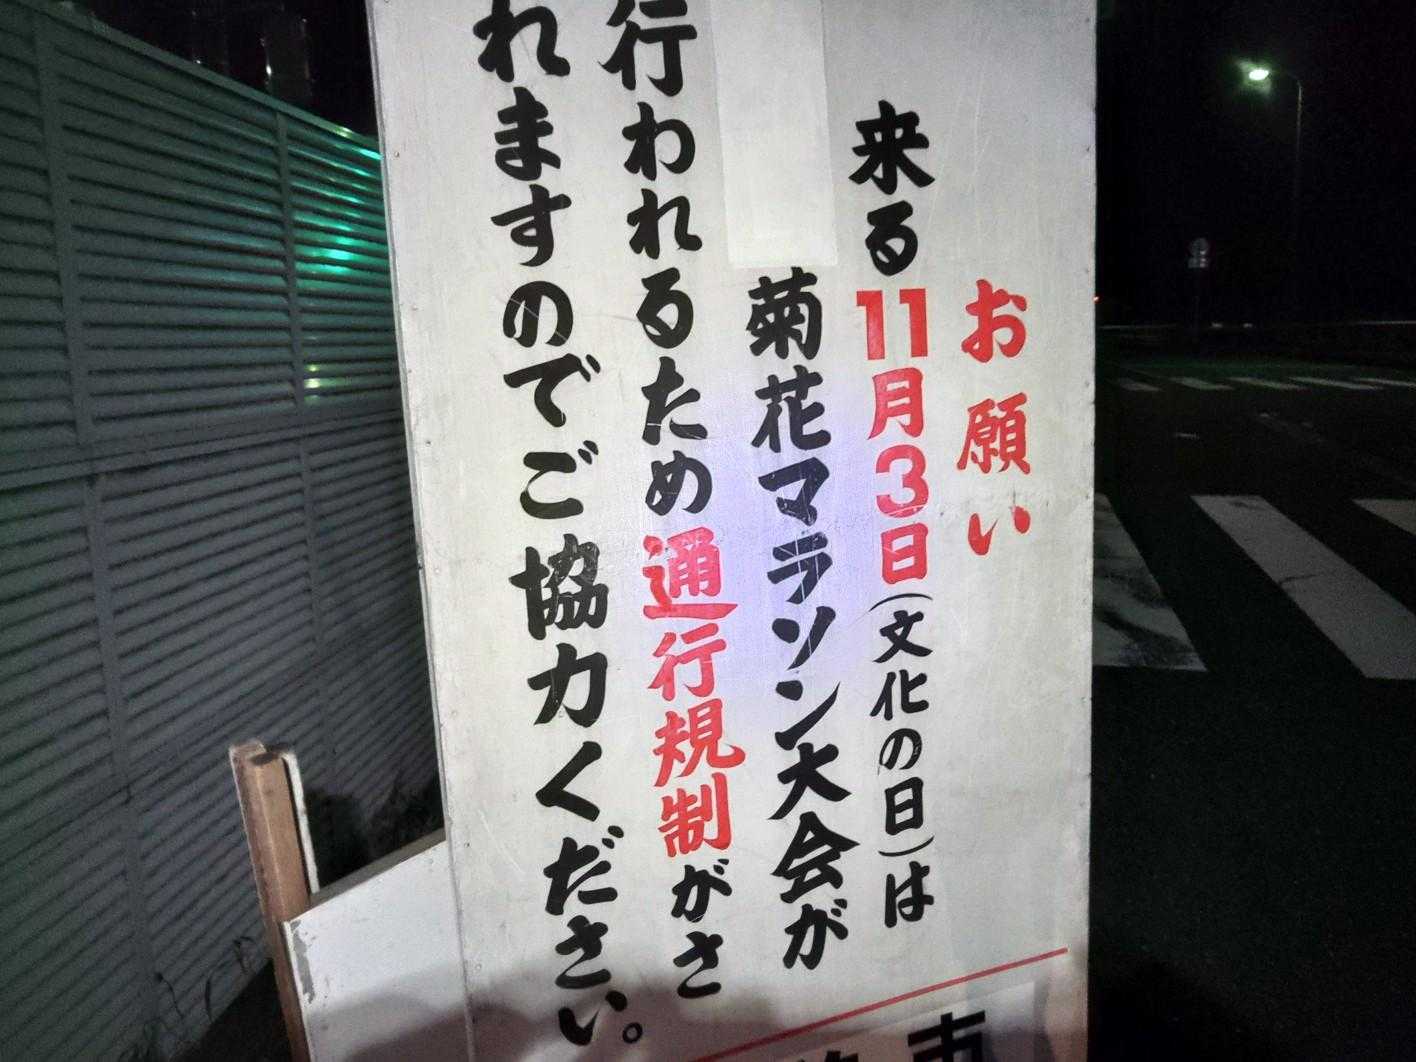 お願い
来る11月3日(文化の日)は
菊花マラソン大会が
行われるため通行規制がさ
れますのでご協力ください。
市